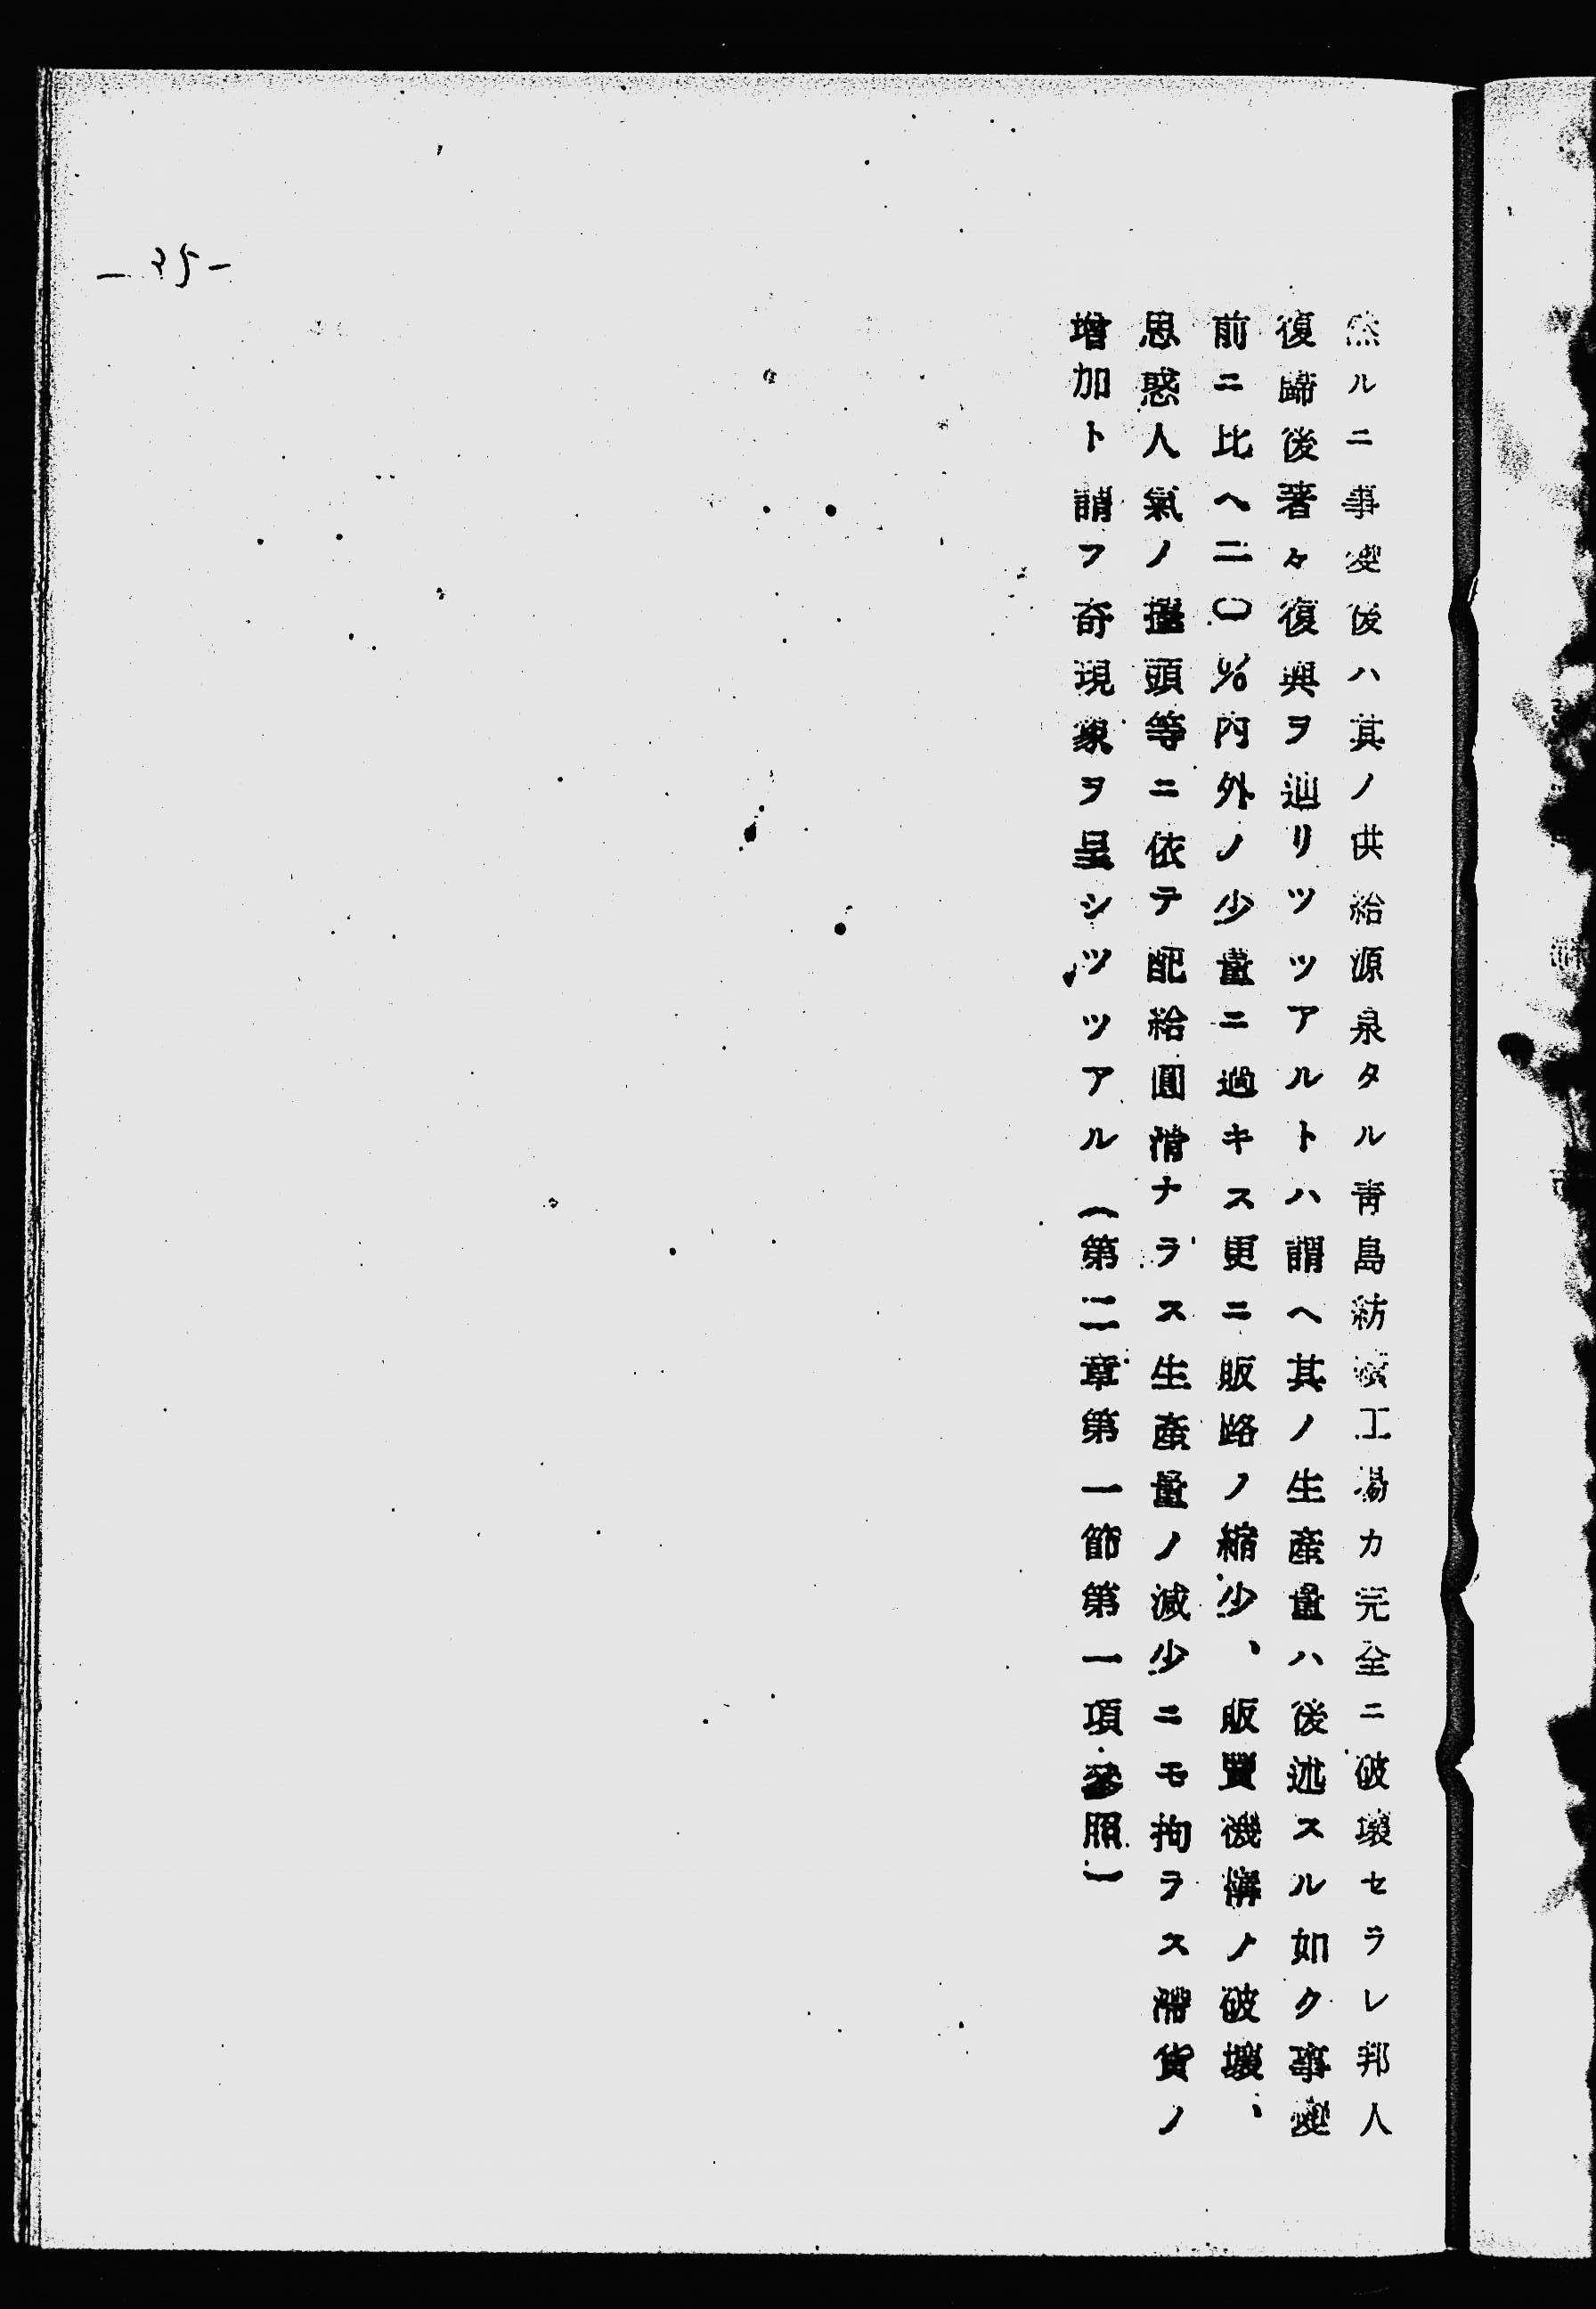 然ルニ事変後ハ其ノ供給源泉タル青島紡績工場カ完全ニ破壊セラレ邦人
復歸後著々復興ヲ辿リツツアルトハ謂ヘ其ノ生産量ハ後述スル如ク事変
前ニ比ヘ二〇％内外ノ少量ニ過キス更ニ販路ノ縮少、販賣機構ノ破壊、
思惑人氣ノ擡頭等ニ依テ配給圓滑ナラス生産量ノ減少ニモ拘ラス滯貨ノ
増加ト謂フ奇現象ヲ呈シツツアル（第二章第一節第一項參照）
－35－